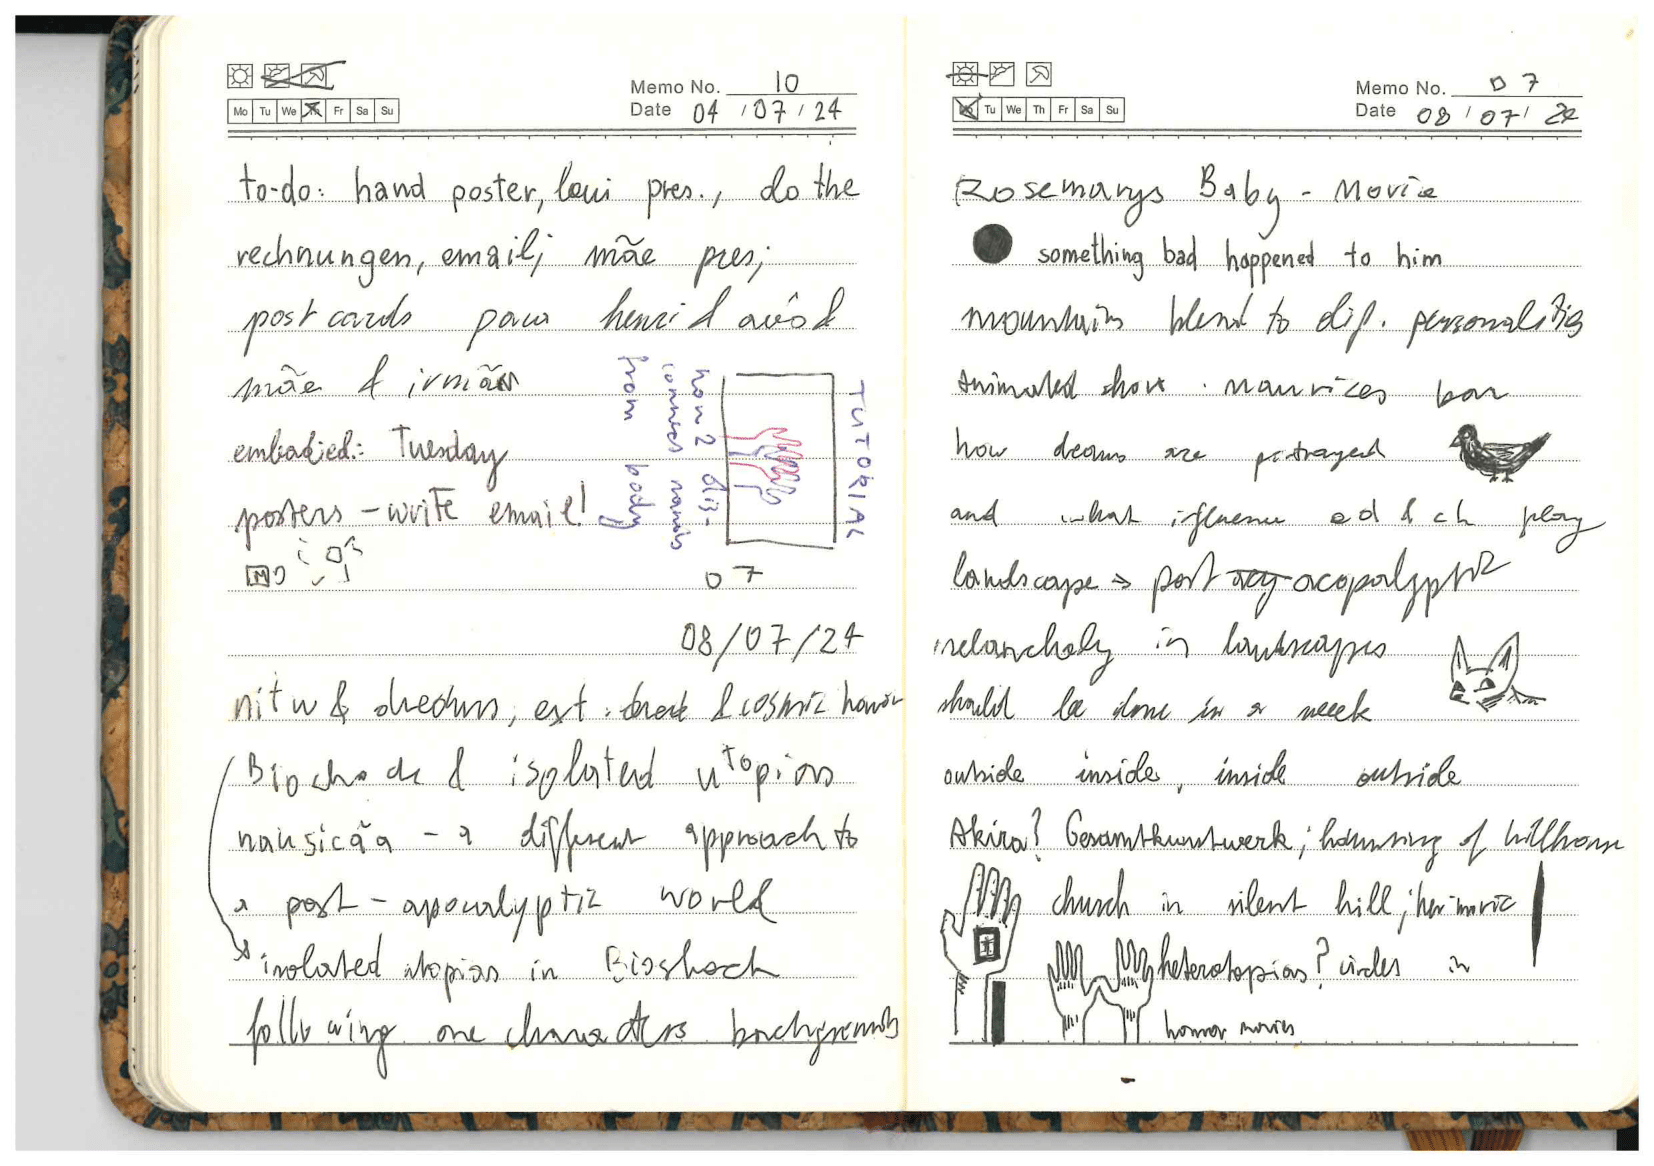 Memo No. 10
Mo Tu We Th Fr Sa Su
Date 04/07/24
to-do: hand poster, pres., do the
rechnungen, email; mãe pres;
postcards para henri & avó &
mãe & irmãos
embodied: Tuesday
posters - write email!
TUTORIAL
how 2 dis-
connect hands
from body
07
08/07/24
& dreams, ext. & cosmic horror
Bioshock & isolated utopias
nausicãa - a different approach to
a post-apocalyptic world
isolated utopias in Bioshock
following one characters backgrounds
Memo No. 07
Mo Tu We Th Fr Sa Su
Date 08/07/24
Rosemarys Baby - Movie
something bad happened to him
mountains blend to dif. personalities
Animated short. maurices bar
how dreams are portrayed
and what influence & play
landscape => post acopalyptic
melancholy in landscapes
should be done in a week
outside inside, inside outside
Akira? Gesamtkunstwerk; haunting of hillhouse
church in silent hill; her movie
heterotopias? circles in
horror movies